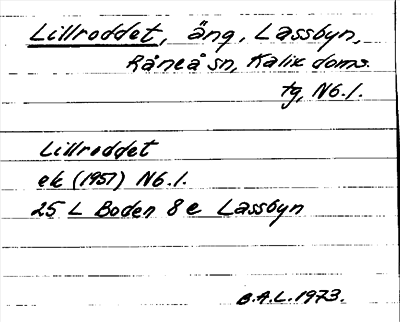 Lillroddet, äng, Lassbyn,
Råneå sn, Kalix doms.
tg, Nb.l.
Lillroddet
ek (1951) Nb.l.
25 L Boden 8e Lassbyn
B.A.L. 1973.